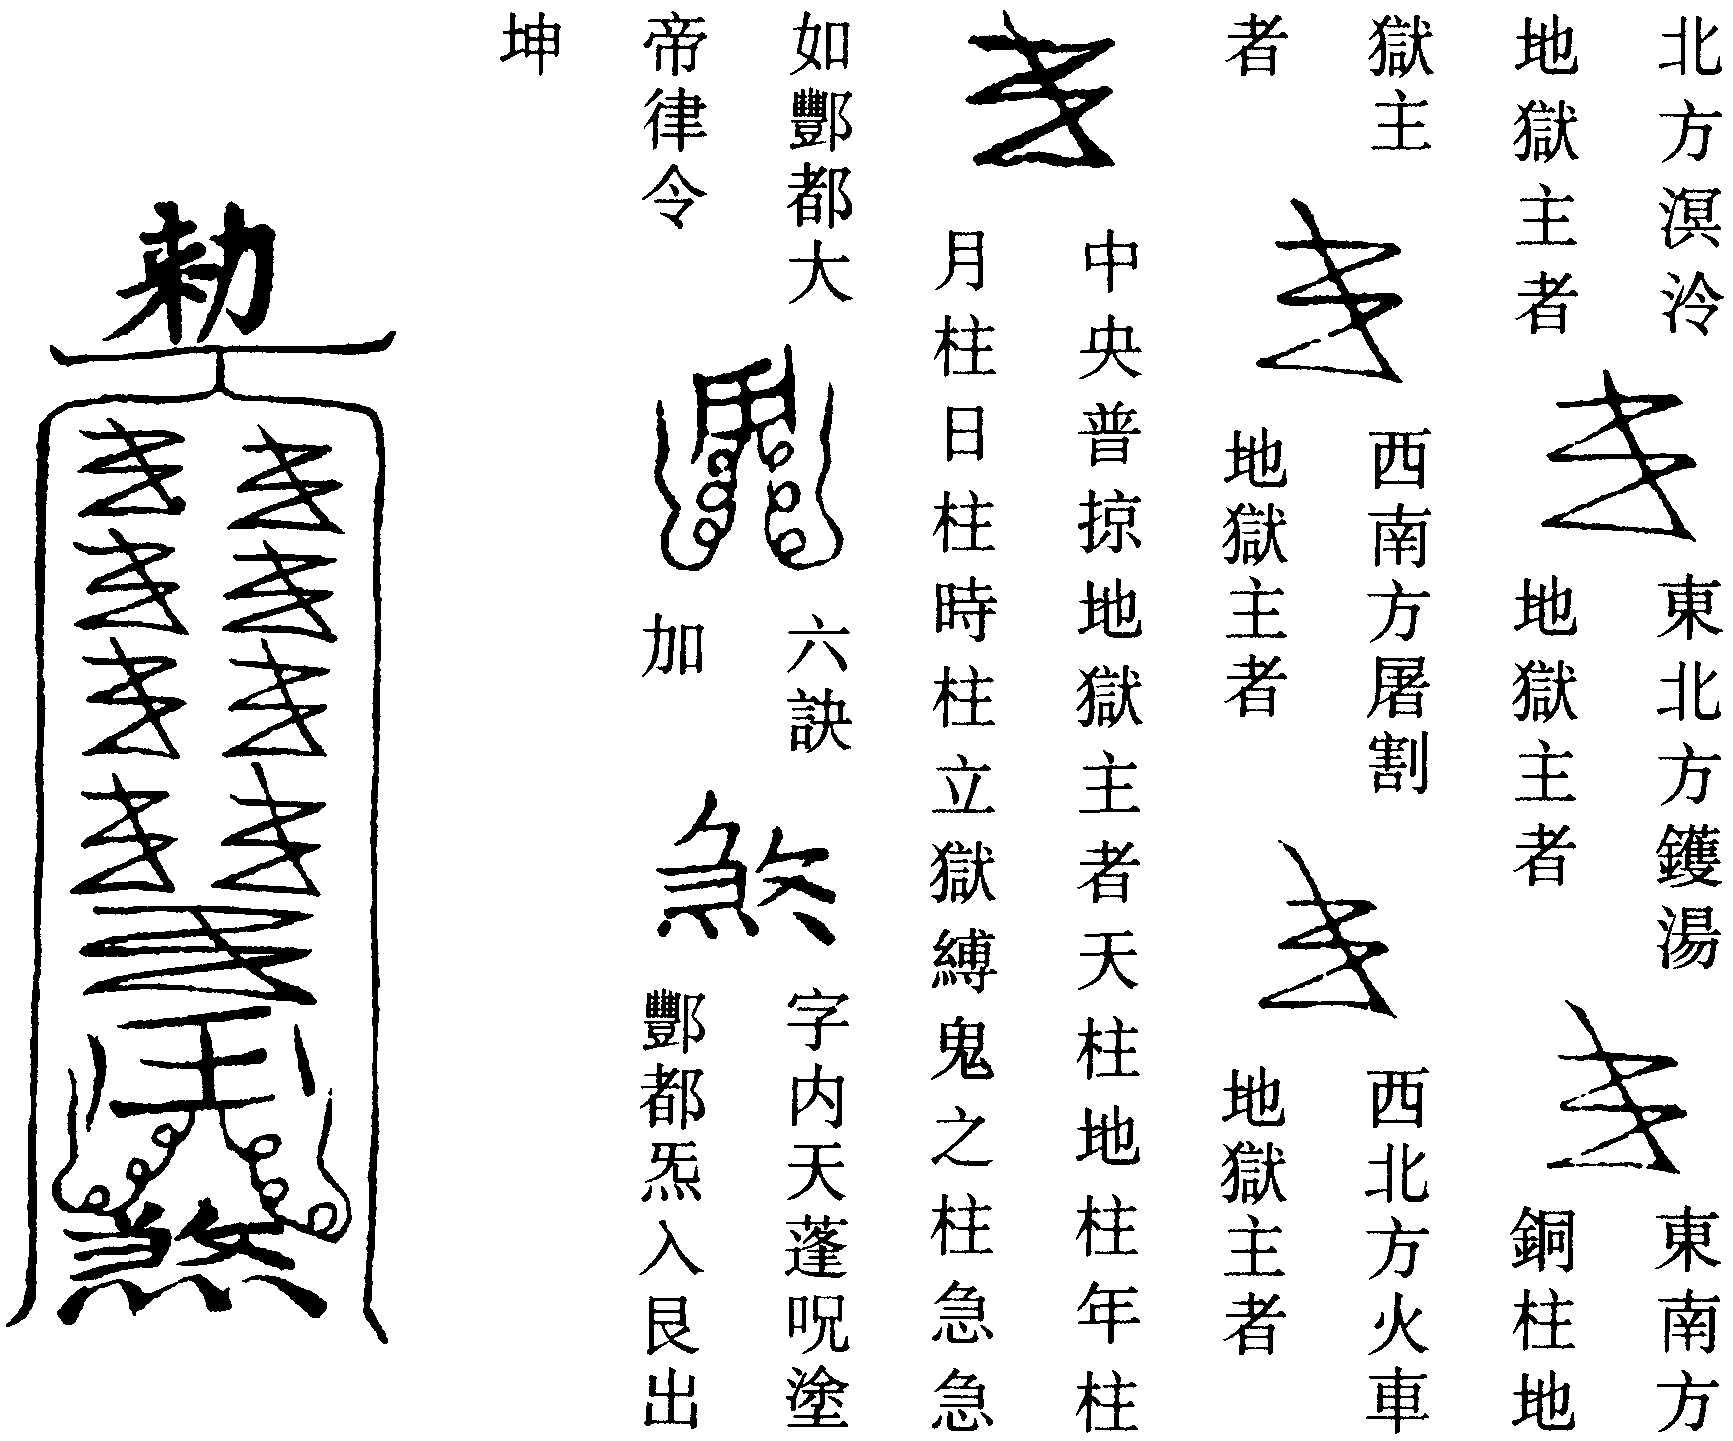 北方溟泠
地獄主者
東北方鑊湯
地獄主者
東南方
銅柱地
獄主
者
西南方屠割
地獄主者
西北方火車
地獄主者
中央普掠地獄主者天柱地柱年柱
月柱日柱時柱立獄縛鬼之柱急急
如酆都大
帝律令
六訣
加
煞
字内天蓬呪塗
酆都炁入艮出
坤
勅
煞